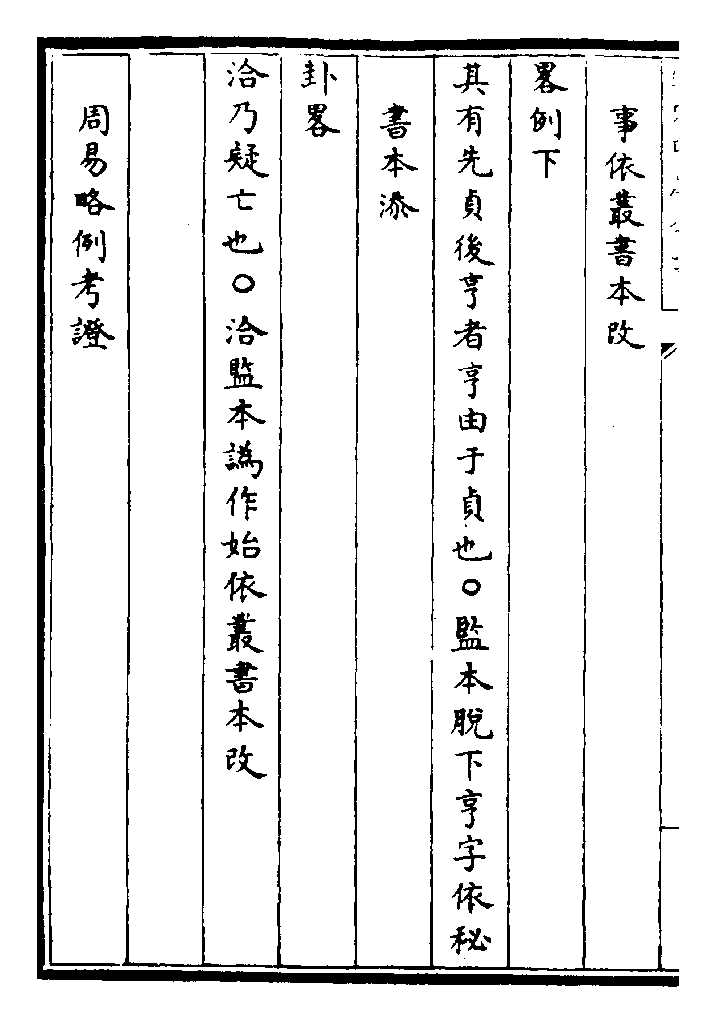 事依叢書本改
畧例下
其有先貞後亨者亨由于貞也〇監本脫下亨字依秘
書本添
卦畧
洽乃疑亡也〇洽監本譌作始依叢書本改
周易略例考證